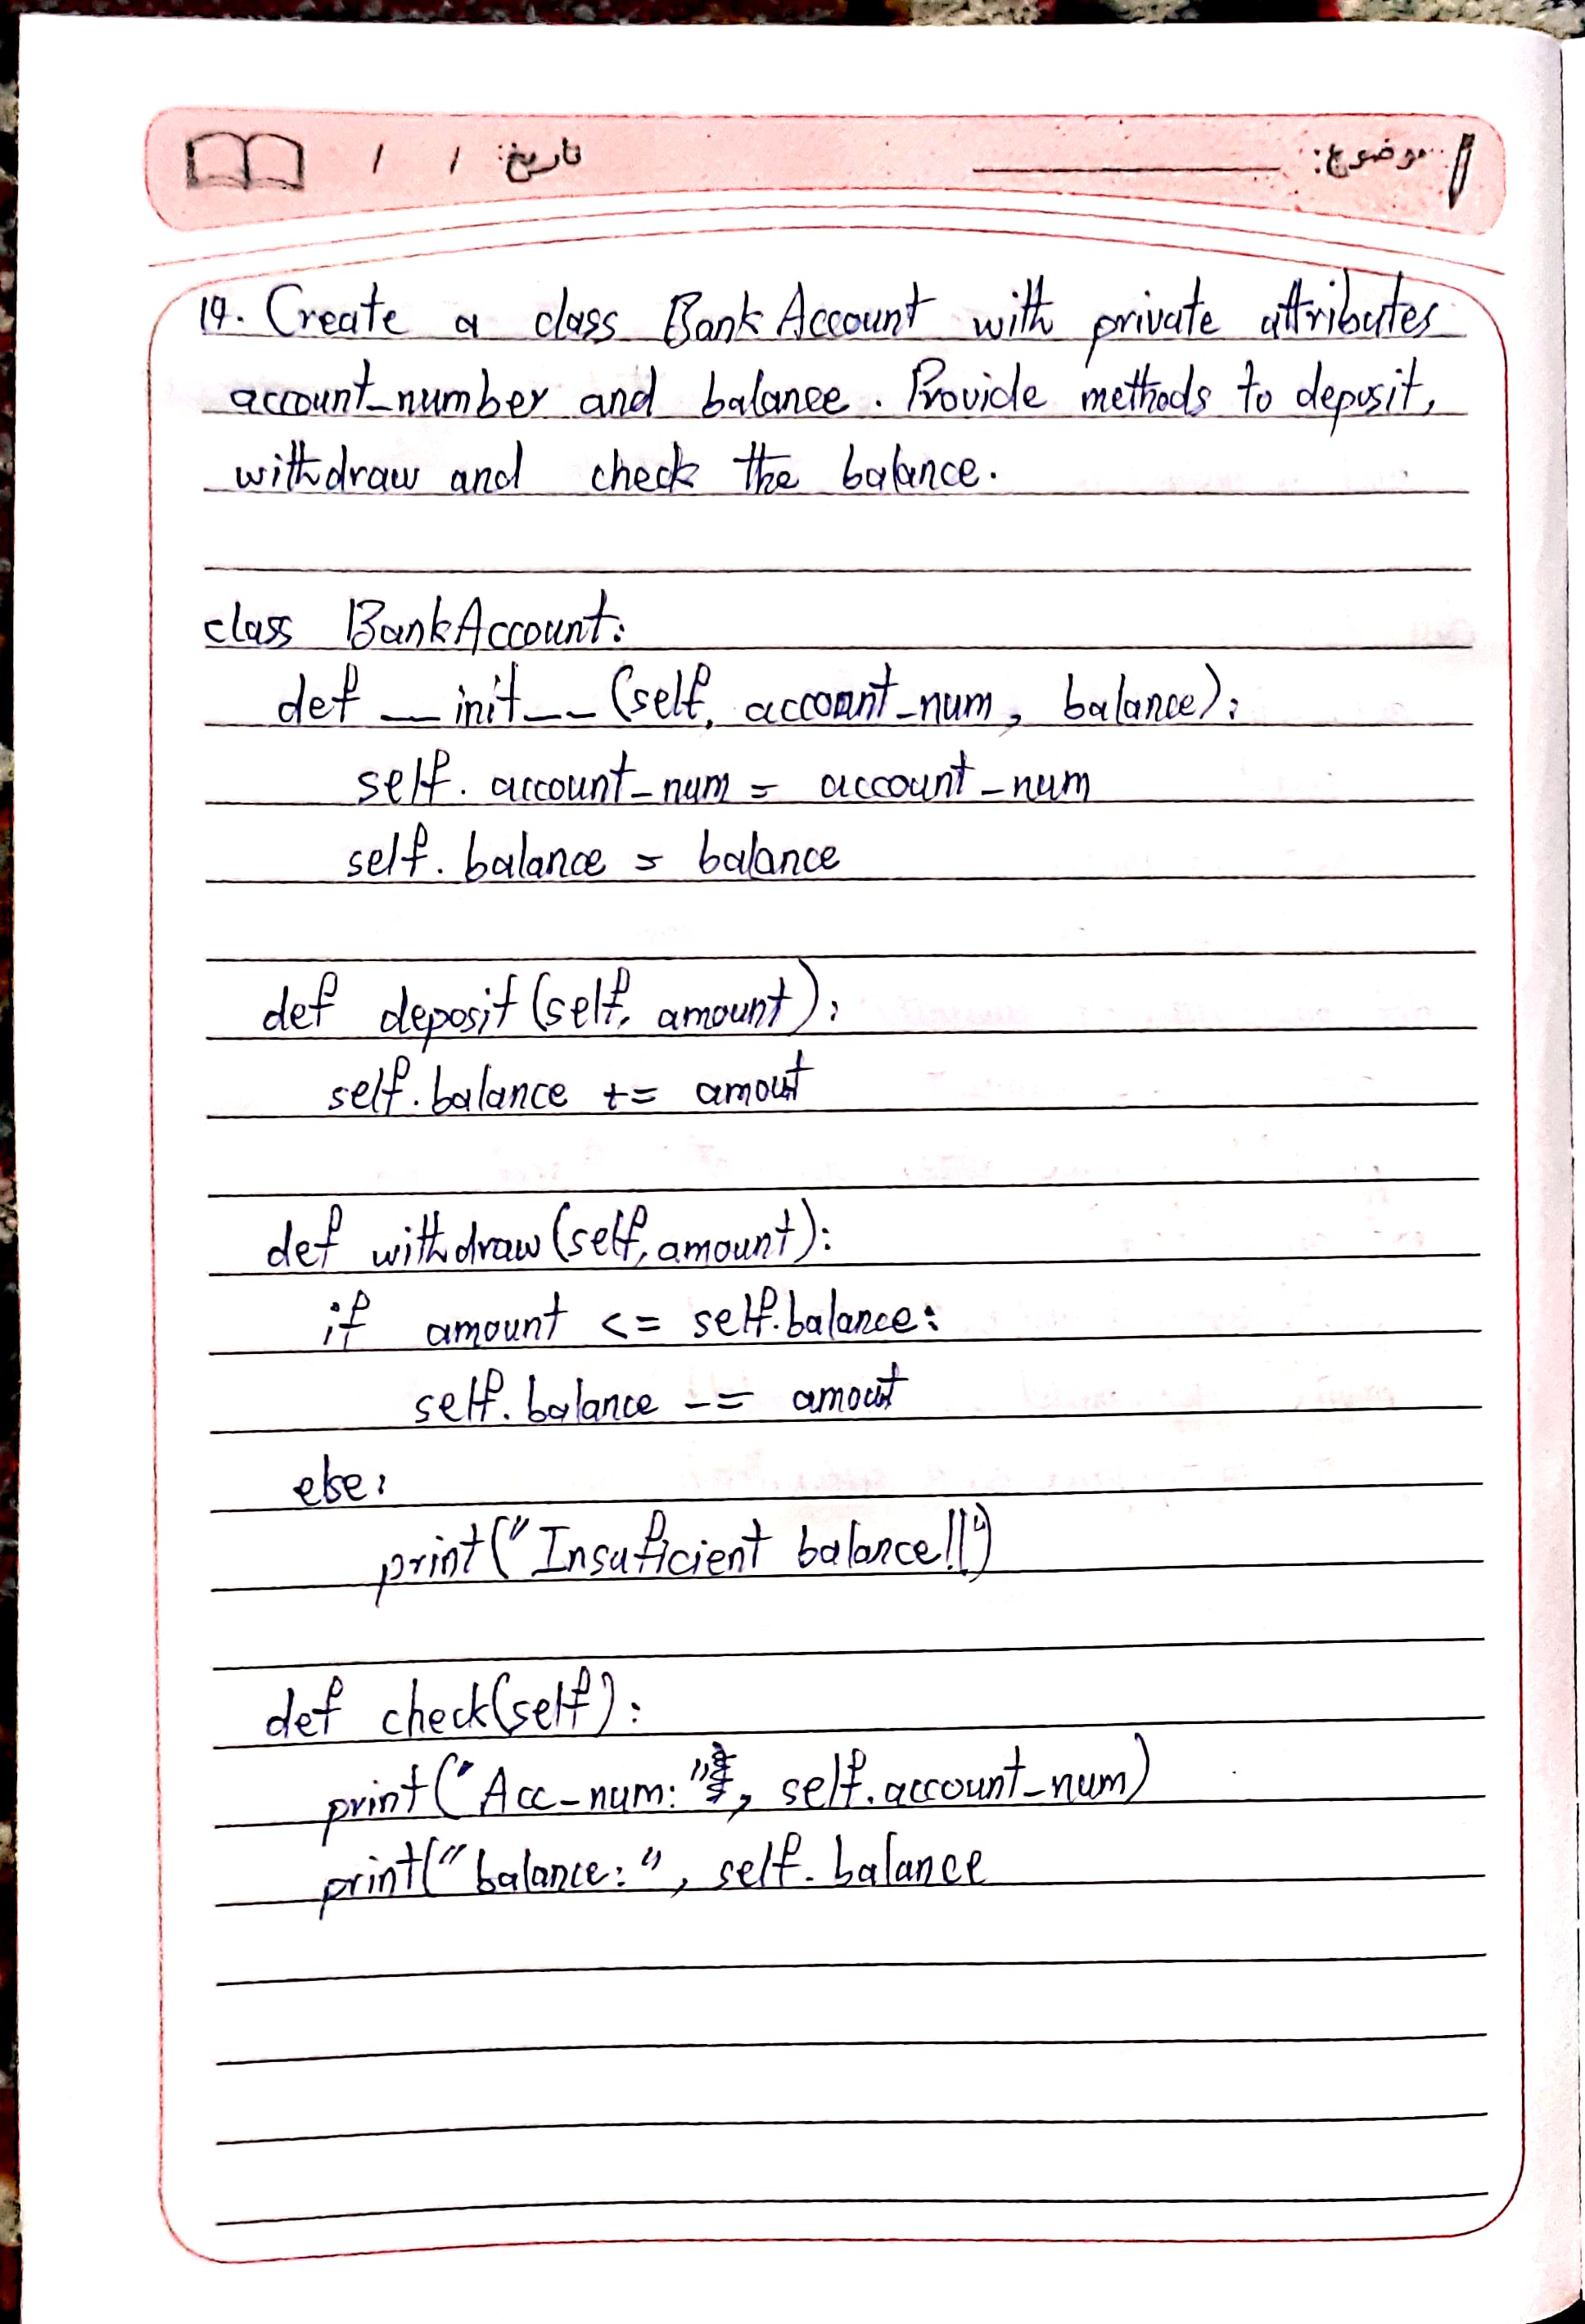 موضوع: تاریخ: / /
19. Create a class Bank Account with private attributes
account_number and balance. Provide methods to deposit,
withdraw and check the balance.
class BankAccount:
def __init__(self, account_num, balance):
self.account_num = account_num
self.balance = balance
def deposit(self, amount):
self.balance += amout
def withdraw(self, amount):
if amount <= self.balance:
self.balance -= amout
else:
print("Insuficient balance!!")
def check(self):
print("Acc_num:", self.account_num)
print("balance:", self.balance